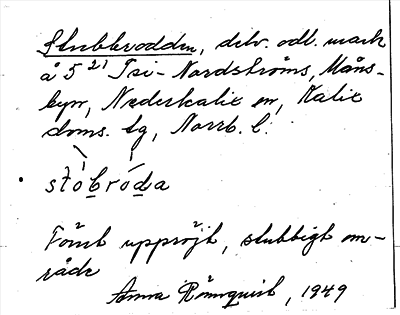 Stubbrodden, delv. odl. mark
å 5²¹ Tri-Nordströms, Måns-
byn, Nederkalix sn, Kalix
doms. tg, Norrb. l.
stobroda
Förut uppröjt, stubbigt om-
råde
Anna Rönnquist, 1949